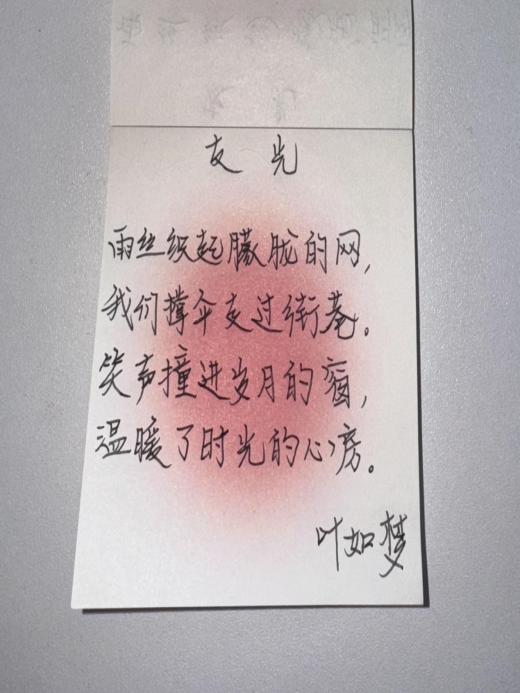 友光
雨丝织起朦胧的网,
我们撑伞走过街巷。
笑声撞进岁月的窗,
温暖了时光的心房。
叶如梦